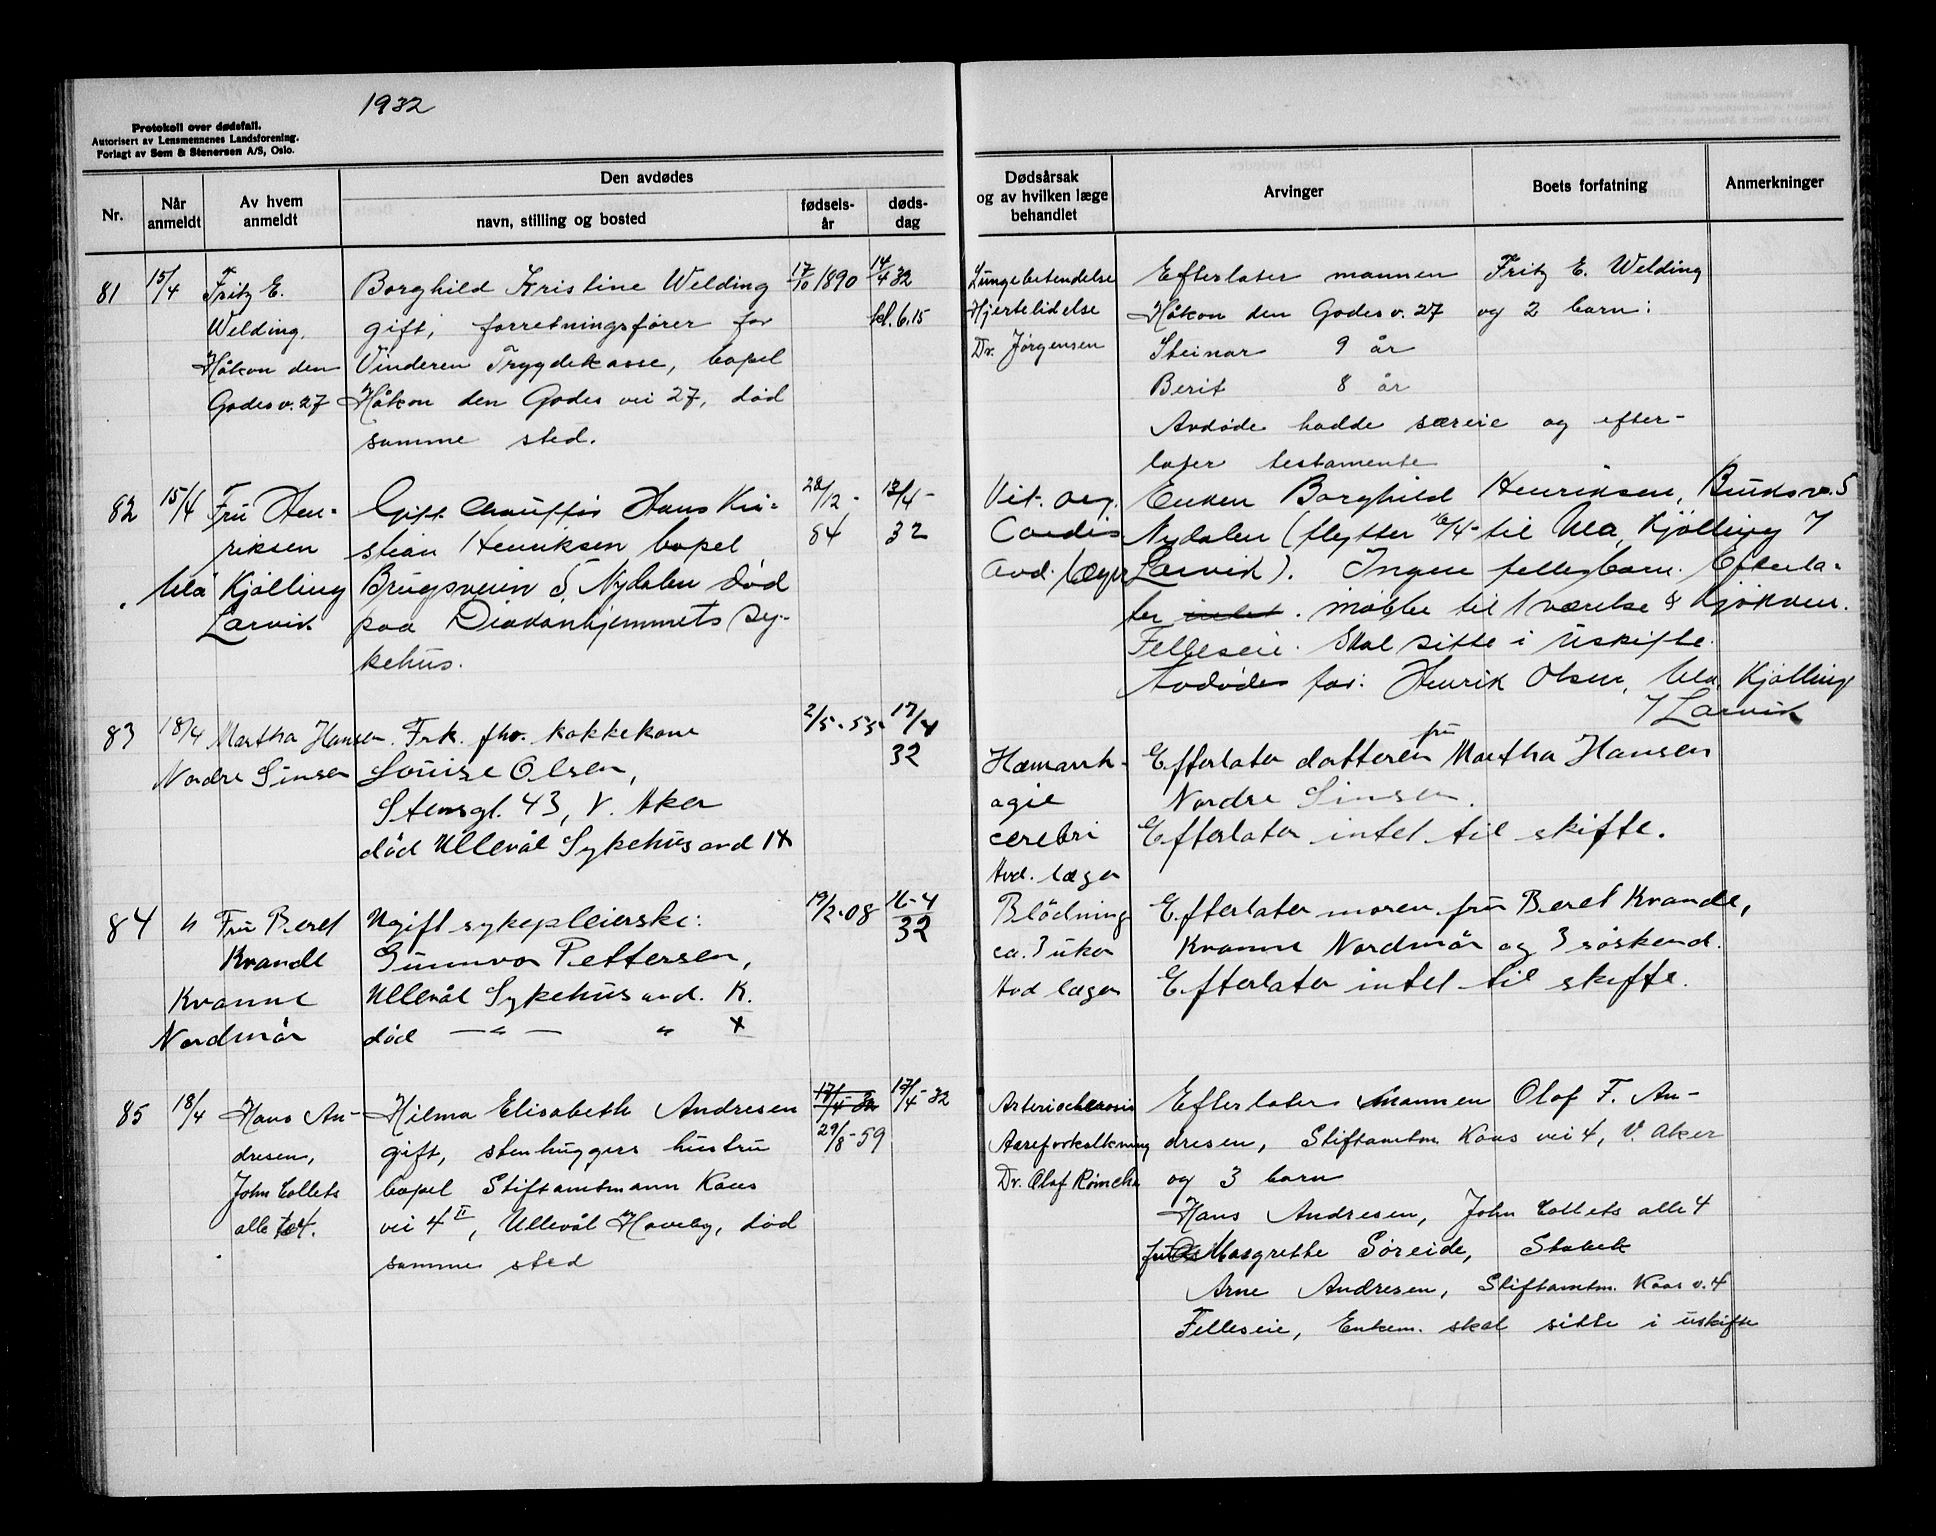 1932
Protokoll over dødsfall.
Autorisert av Lensmennenes Landsforening.
Forlagt av Sem & Stenersen A/S, Oslo.
Nr.
Når anmeldt
Av hvem anmeldt
Den avdødes
navn, stilling og bosted
fødsels-år
døds-dag
Dødsårsak og av hvilken læge behandlet
Arvinger
Boets forfatning
Anmerkninger
81 15/4 Fritz E. Borghild Kristine Welding 17/10 1890 14/4 32
Welding, gift, forretningsfører for kl. 6.15
Håkon den Vinderen Trygdekasse, bopel
Godes v. 27 Håkon den Godes vei 27, død
samme sted.
Lungebetendelse Efterlater mannen Fritz E. Welding
Hjertelidelse Håkon den Godes v. 27 og 2 barn:
Dr. Jørgensen Steinar 9 år
Berit 8 år
Avdøde hadde særeie og efter-
later testamente
82 15/4 Fru Hen- Gift Chauffør Hans Kri- 28/12- 13/4-
riksen stian Henriksen bopel 84 32
Ula Kjølling Brugsveien 5, Nydalen død
Larvik paa Diakonhjemmets Sy-
kehus.
Vit. org. Enken Borghild Henriksen, Bruksv. 5
Cordis Nydalen (flytter 16/4- til Ula, Kjølling /
Avd. læger Larvik). Ingen fellesbarn. Efterla-
ter intet. møbler til 1 værelse & kjøkken.
Felleseie. Skal sitte i uskifte.
Avdødes far: Henrik Olsen, Ula, Kjølling
/ Larvik
83 18/4 Martha Hansen Frk. fhv. kokkekone 2/5-53 17/4
Nordre Sinsen Louise Olsen, 32
Stensgt. 43, V. Aker
død Ullevål Sykehus avd IX
Hæmorrh- Efterlater datteren fru Martha Hansen
agie Nordre Sinsen.
cerebri Efterlater intet til skifte.
Avd. læger
84 " Fru Beret Ugift sykepleierske: 19/2-08 16-4
Kvande Gunnvor Pettersen, 32
Kvanne Ullevål Sykehus avd. K.
Nordmør død — " — " X
Blødning Efterlater moren fru Beret Kvande,
ca. 3 uker Kvanne Nordmør og 3 søskend.
Avd læger Efterlater intet til skifte.
85 18/4 Hans An- Hilma Elisabeth Andresen 17/4-32 17/4-32
dresen, gift, stenhuggers hustru 29/8-59
John Collets bopel Stiftamtmann Kaas
alle 4. vei 4 II, Ullevål Haveby, død
samme sted
Arteriosclerosis Efterlater mannen Olaf F. An-
Aareforkalkning dresen, Stiftamtm. Kaas vei 4, V. Aker
Dr. Olaf Römcke og 3 barn
Hans Andresen, John Collets alle 4
fru Margrethe Søreide, Stabek
Arne Andresen, Stiftamtm. Kaas v. 4
Felleseie, Enkem. skal sitte i uskifte